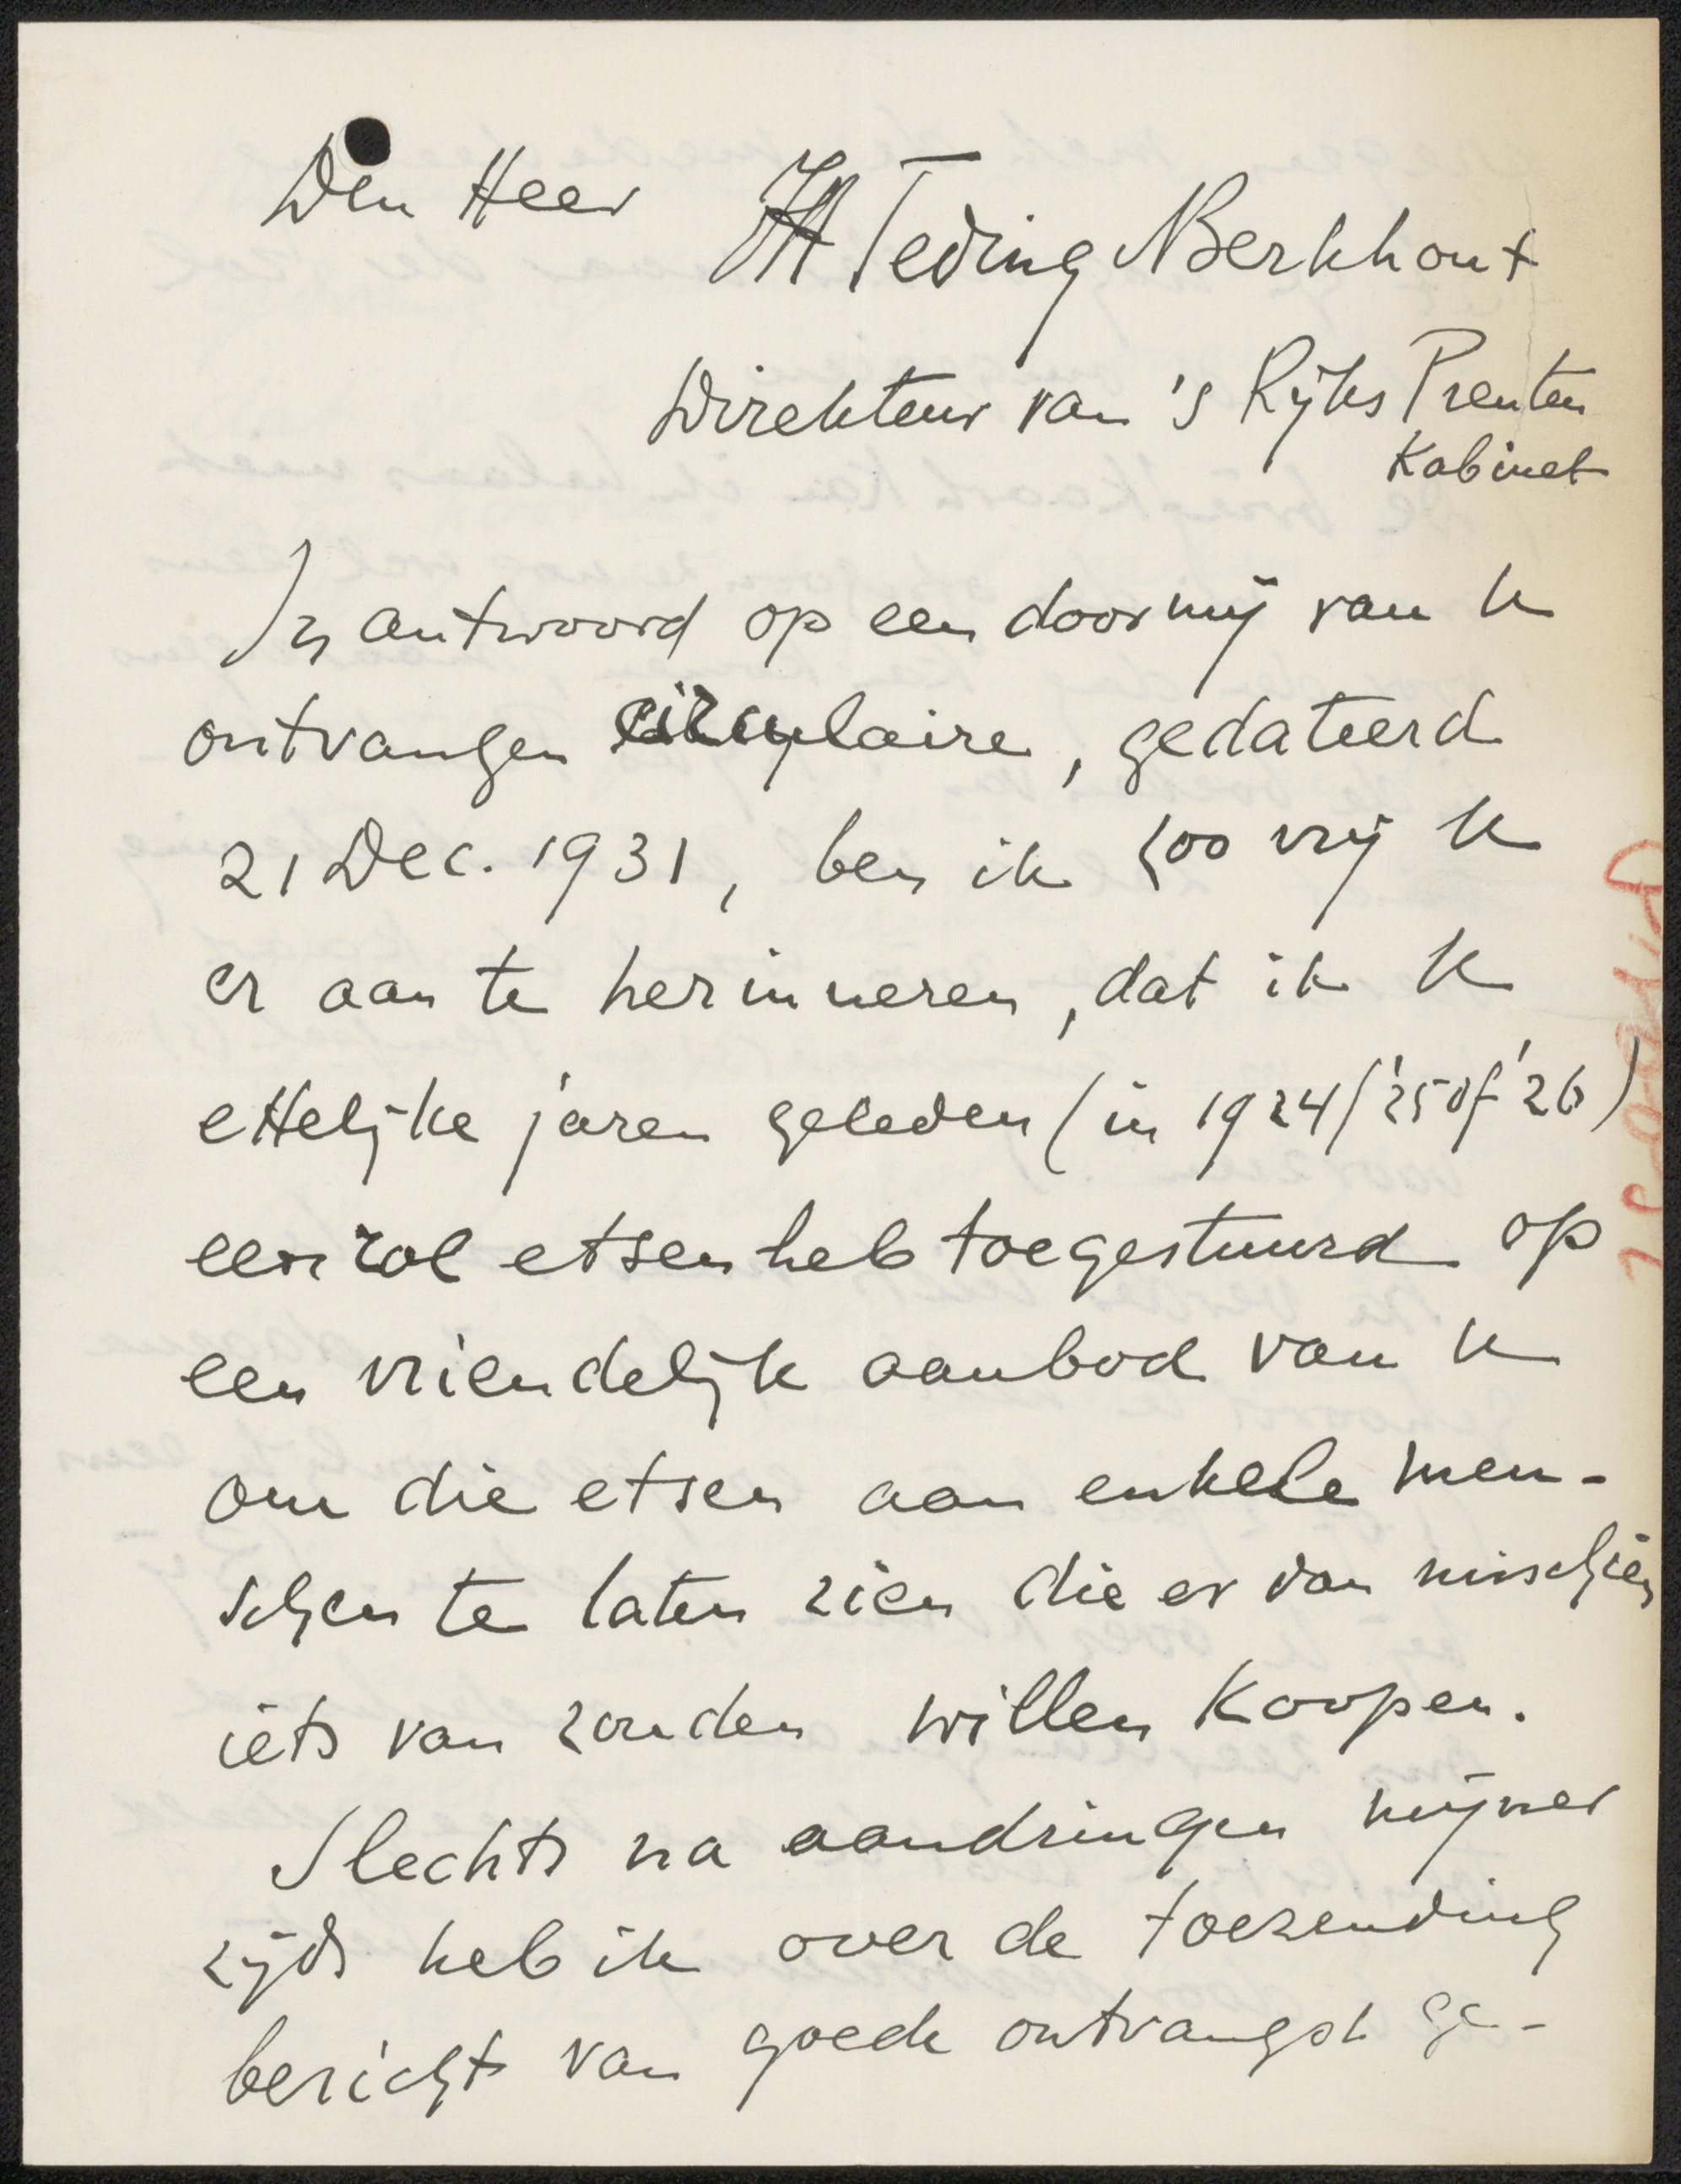 Den Heer
JH Teding v Berkhout
Direkteur van 's Rijks Prenten
Kabinet
In antwoord op een door mij van U
ontvangen circulaire, gedateerd
21 Dec. 1931, ben ik zoo vrij U
er aan te herinneren, dat ik U
ettelijke jaren geleden (in 1924/'25 of '26)
een rol etsen heb toegestuurd op
een vriendelijk aanbod van U
om die etsen aan enkele men-
schen te laten zien die er dan misschien
iets van zouden willen koopen.
Slechts na aandringen mijner
zijds heb ik over de toezending
bericht van goede ontvangst ge-